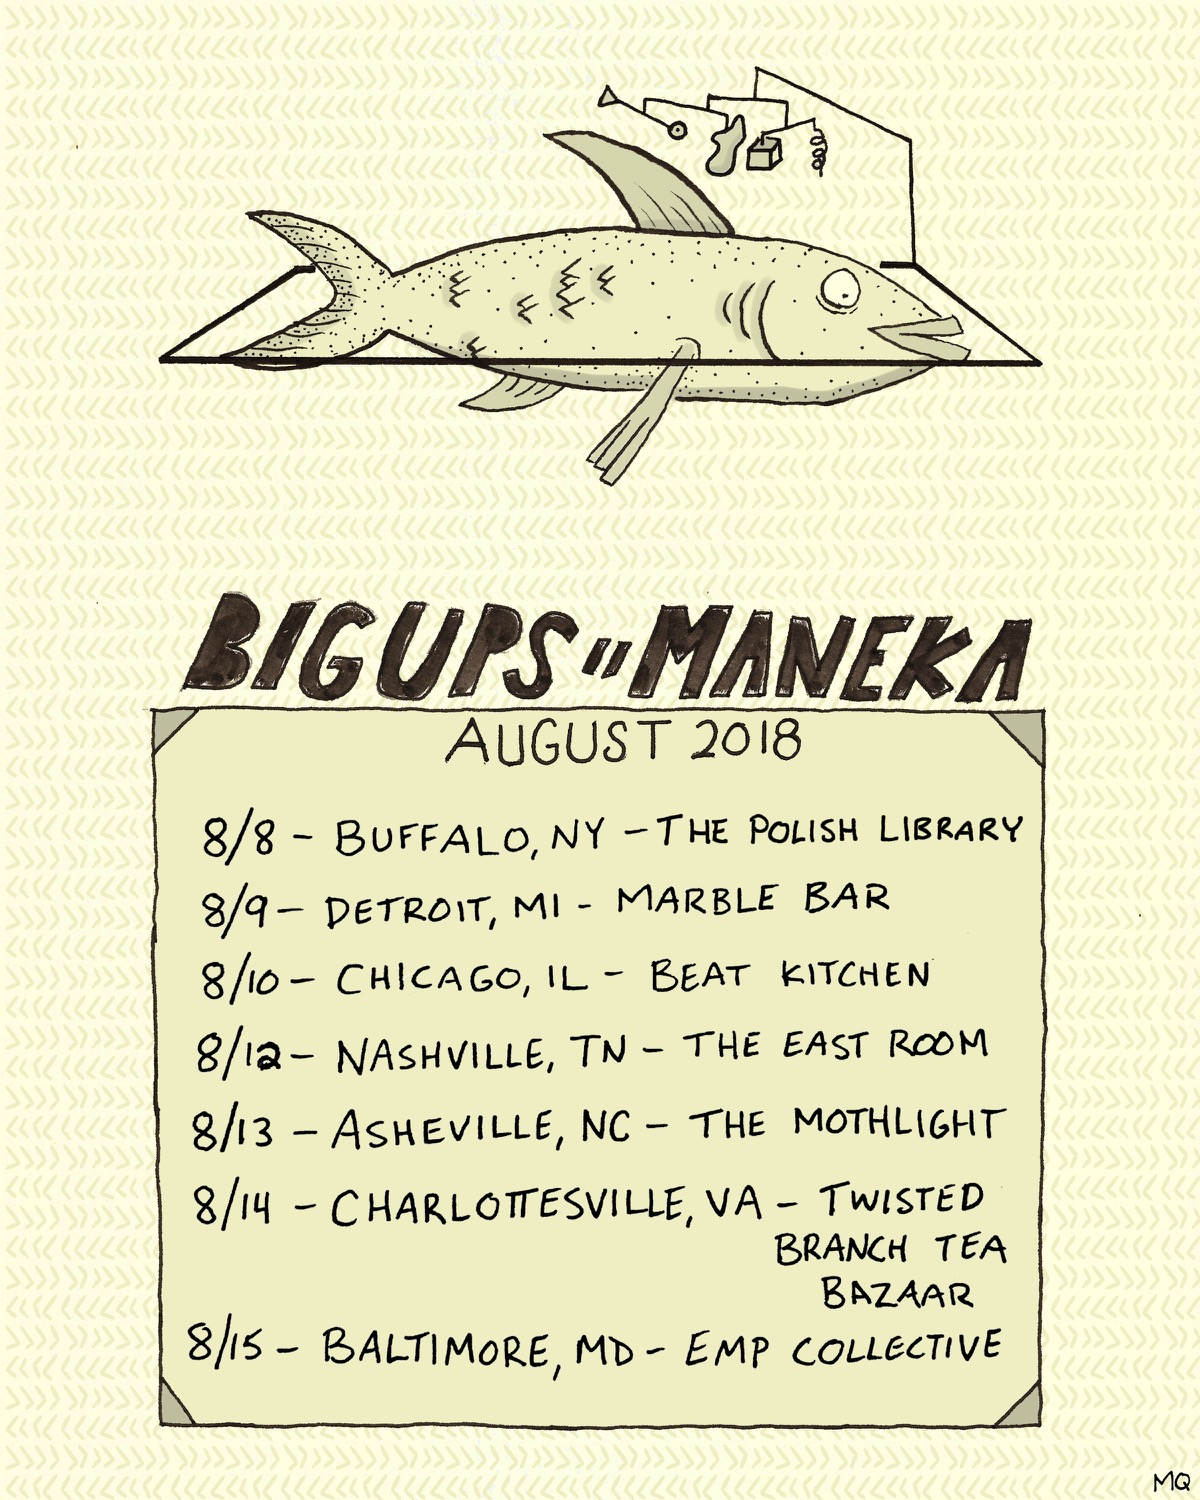 BIG UPS " MANEKA
AUGUST 2018
8/8 - BUFFALO, NY - THE POLISH LIBRARY
8/9 - DETROIT, MI - MARBLE BAR
8/10 - CHICAGO, IL - BEAT KITCHEN
8/12 - NASHVILLE, TN - THE EAST ROOM
8/13 - ASHEVILLE, NC - THE MOTHLIGHT
8/14 - CHARLOTTESVILLE, VA - TWISTED
BRANCH TEA
BAZAAR
8/15 - BALTIMORE, MD - EMP COLLECTIVE
MQ